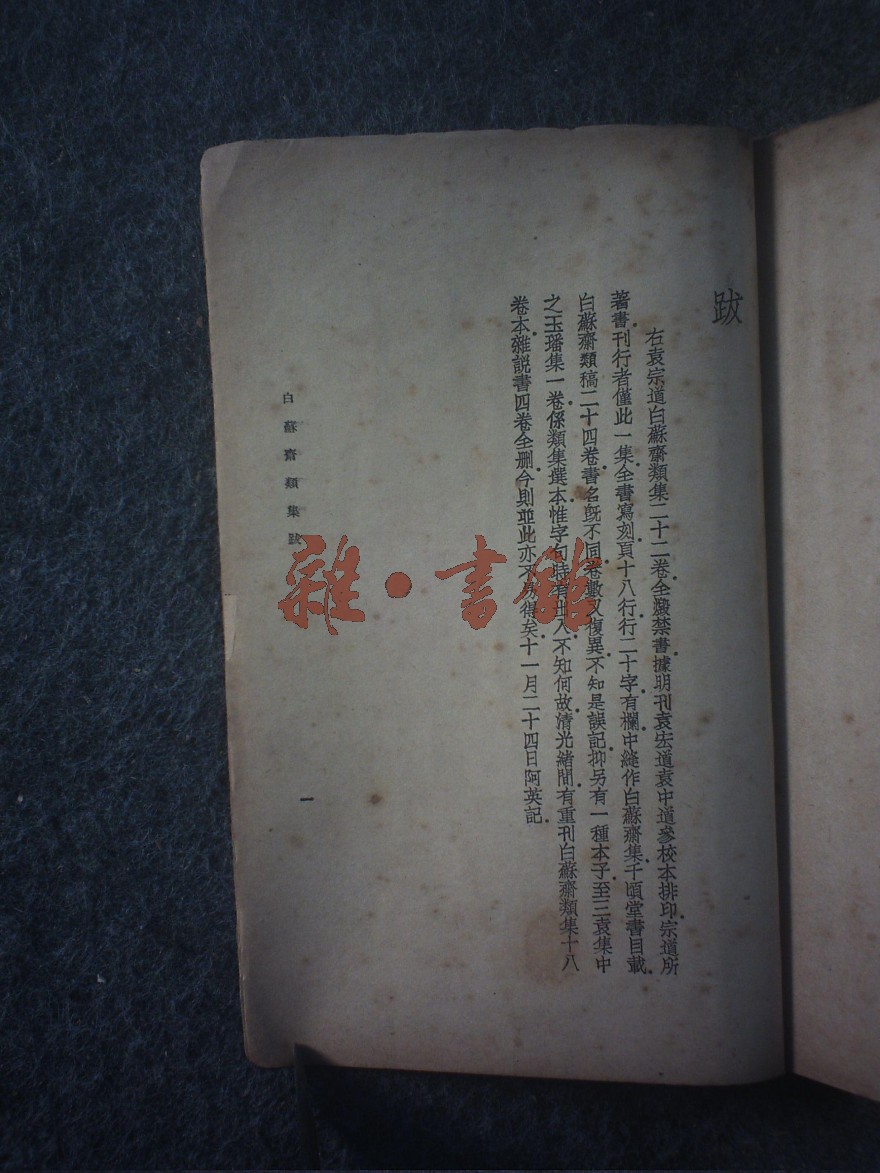 跋
右袁宗道白蘇齋類集二十二卷全燬禁書據明刊袁宏道袁中道參校本排印宗道所
著書刊行者僅此一集全書寫刻頁十八行行二十字有欄中縫作白蘇齋集千頃堂書目載
白蘇齋類稿二十四卷書名旣不同卷數又復異不知是誤記抑另有一種本子至三袁集中
之玉璠集一卷係類集選本惟字句時有出入不知何故清光緖間有重刊白蘇齋類集十八
卷本雜説書四卷全删今則並此亦不易得矣十一月二十四日阿英記
白蘇齋類集 跋
一
雜·書館